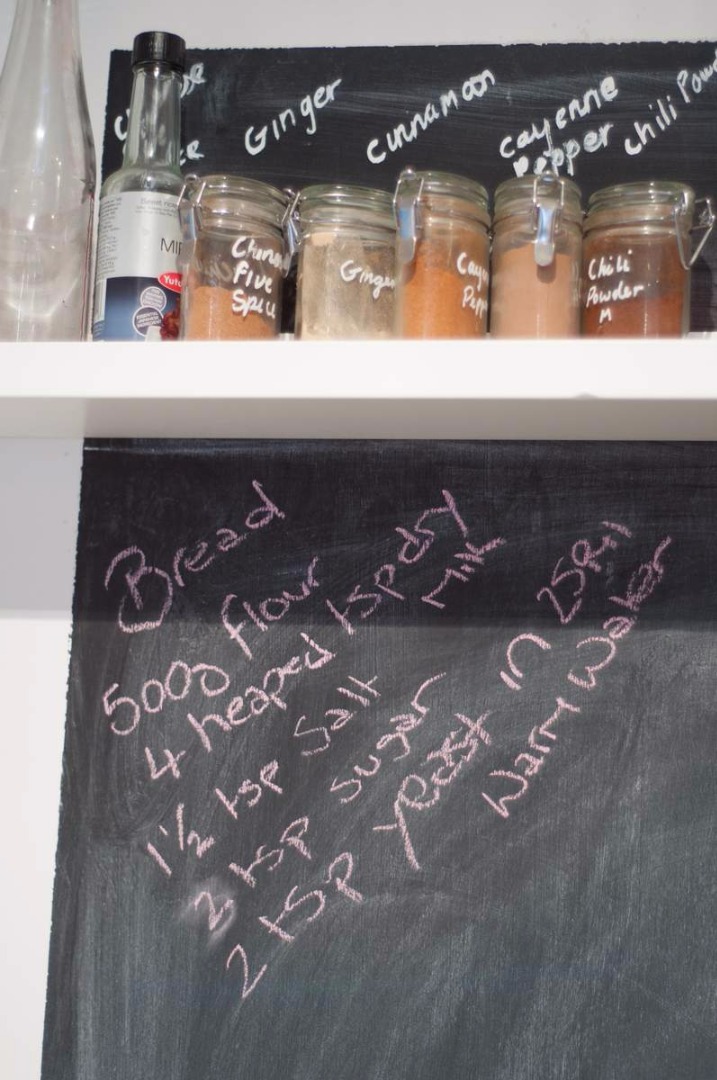 Ginger
cinnamon
cayenne
Pepper
chili Powd
MIR
Yuta
Five
Spice
Ginge
Cay
Pepp
Chili
Powder
M
Bread
500g flour
4 heaped tsp dry
Milk
1½ tsp Salt
2 tsp sugar
2 tsp yeast in
Warm Water